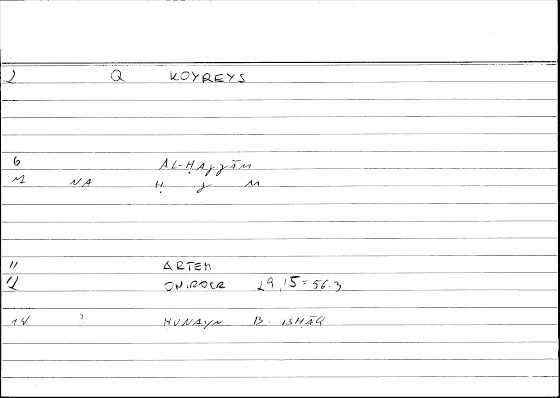 2 Q KOYREYS
6 AL-ḤAyyĀM
M NA Ḥ y M
11 ARTEM
12 ONIROCR 29,15 = 56.3
14 ? ḤUNAYN B. ISḤĀQ